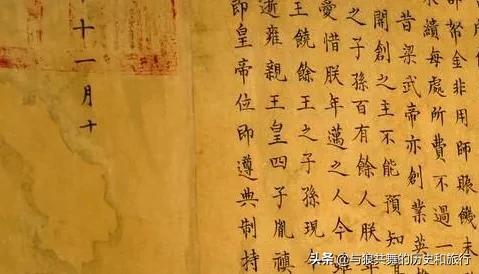 帑金非用師賑饑未
繢每處所費不過一
昔梁武帝亦創業英
開創之主不能預知
之子孫百有餘人朕
愛惜朕年邁之人今
王饒餘王之子孫現
逝雍親王皇四子胤禛
即皇帝位即遵典制持
十一月十
头条 @与狼共舞的历史和旅行